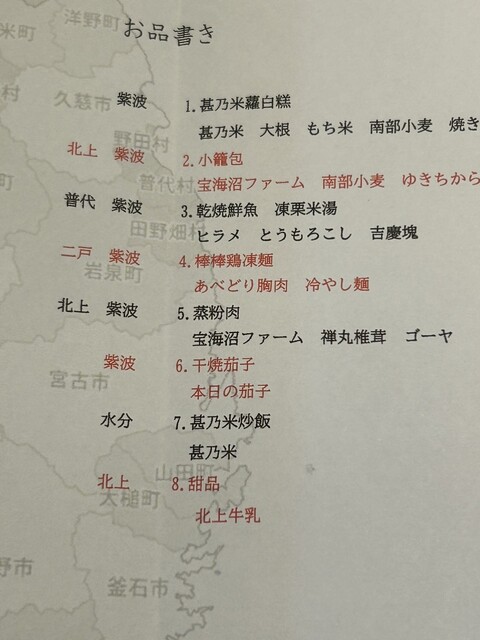 お品書き
紫波 1.甚乃米蘿白糕
甚乃米 大根 もち米 南部小麦 焼き
北上 紫波 2.小籠包
宝海沼ファーム 南部小麦 ゆきちから
普代 紫波 3.乾焼鮮魚 凍栗米湯
ヒラメ とうもろこし 吉慶塊
二戸 紫波 4.棒棒鶏凍麺
あべどり胸肉 冷やし麺
北上 紫波 5.蒸粉肉
宝海沼ファーム 禅丸椎茸 ゴーヤ
紫波 6.干焼茄子
本日の茄子
水分 7.甚乃米炒飯
甚乃米
北上 8.甜品
北上牛乳
洋野町
米町
久慈市
村
野田村
普代村
町
田野畑村
岩泉町
宮古市
山田町
大槌町
野市
釜石市